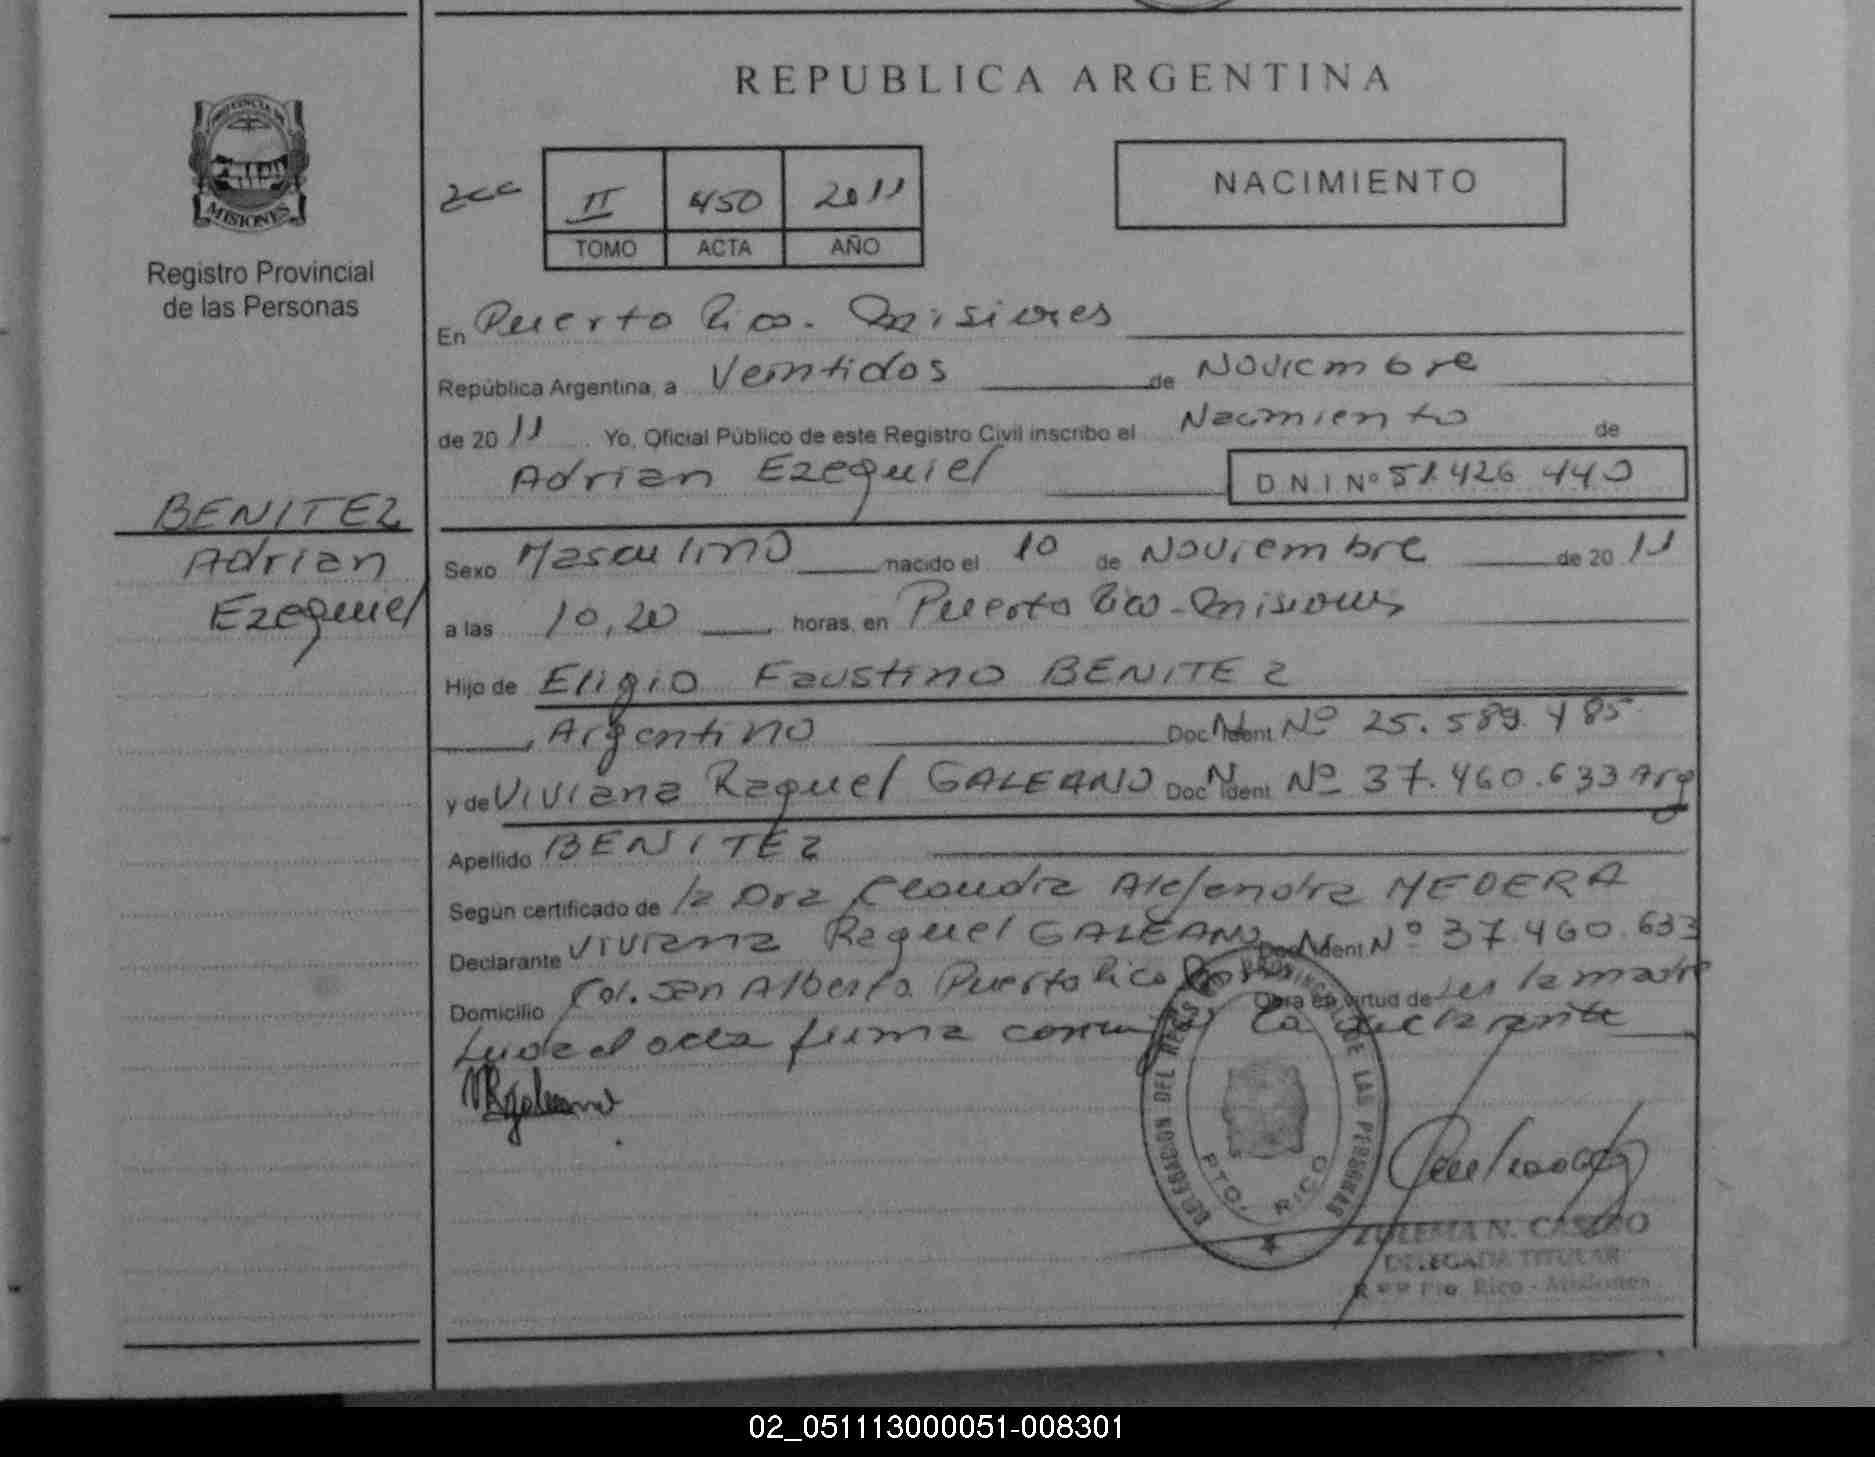 REPUBLICA ARGENTINA
MISIONES
Registro Provincial
de las Personas
II 450 2011
TOMO ACTA AÑO
NACIMIENTO
En Puerto Rico. Misiones
República Argentina, a Veintidos de Noviembre
de 20 11 Yo, Oficial Público de este Registro Civil inscribo el Nacimiento de
Adrian Ezequiel DNI Nº 51.426 440
BENITEZ
Adrian
Ezequiel
Sexo Masculino nacido el 10 de Noviembre de 20 11
a las 10,20 horas, en Puerto Rico - Misiones
Hijo de Eligio Faustino BENITEZ
, Argentino Doc Ident Nº 25.589.485
y de Viviana Raquel GALEANO Doc Ident Nº 37.460.633 Arg
Apellido BENITEZ
Según certificado de la Dra Claudia Alejandra MEDERA
Declarante Viviana Raquel GALEANO Doc Ident Nº 37.460.633
Domicilio Col. San Alberto Puerto Rico Obra en virtud de ser la madre
Leida el acta firma la declarante
DELEGACION DEL REGISTRO PROVINCIAL DE LAS PERSONAS
PTO. RICO
ZULEMA N. CASTRO
DELEGADA TITULAR
Pto Rico - Misiones
02_051113000051-008301